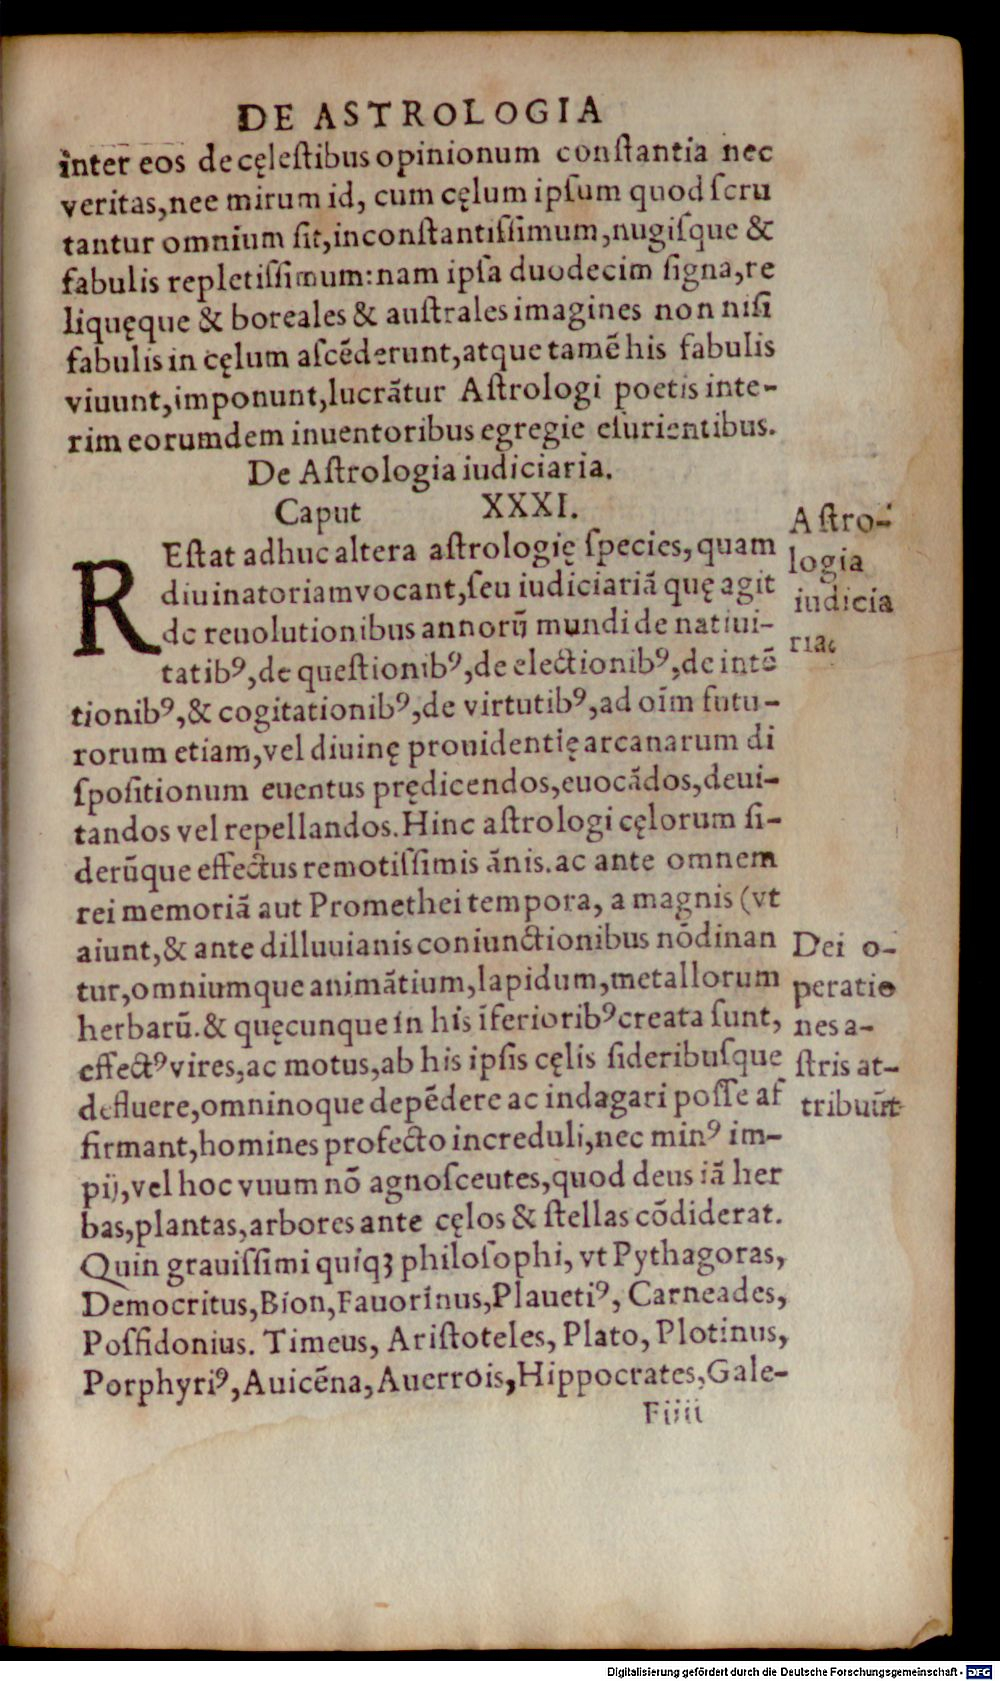 DE ASTROLOGIA
inter eos de cęlestibus opinionum constantia nec
veritas,nee mirum id, cum cęlum ipsum quod scru
tantur omnium sit,inconstantissimum,nugisque &
fabulis repletissimum:nam ipsa duodecim signa,re
liquęque & boreales & australes imagines non nisi
fabulis in cęlum ascēderunt,atque tamē his fabulis
viuunt,imponunt,lucrātur Astrologi poetis inte-
rim eorumdem inuentoribus egregie esurientibus.
De Astrologia iudiciaria.
Caput XXXI.
REstat adhuc altera astrologię species, quam
diuinatoriam vocant,seu iudiciariā quę agit
de reuolutionibus annorū mundi de natiui-
tatibꝰ,de questionibꝰ,de electionibꝰ,de intē
tionibꝰ,& cogitationibꝰ,de virtutibꝰ,ad oīm futu-
rorum etiam,vel diuinę prouidentię arcanarum di
spositionum euentus prędicendos,euocādos,deui-
tandos vel repellandos.Hinc astrologi cęlorum si-
derūque effectus remotissimis ānis.ac ante omnem
rei memoriā aut Promethei tempora, a magnis (vt
aiunt,& ante dilluuianis coniunctionibus nōdinan
tur,omniumque animātium,lapidum,metallorum
herbarū.& quęcunque in his īferioribꝰ creata sunt,
effectꝰ vires,ac motus,ab his ipsis cęlis sideribusque
defluere,omninoque depēdere ac indagari posse af
firmant,homines profecto increduli,nec minꝰ im-
pij,vel hoc vuum nō agnosceutes,quod deus iā her
bas,plantas,arbores ante cęlos & stellas cōdiderat.
Quin grauissimi quiqꝫ philosophi, vt Pythagoras,
Democritus,Bion,Fauorinus,Plauetiꝰ, Carneades,
Possidonius. Timeus, Aristoteles, Plato, Plotinus,
Porphyriꝰ,Auicēna,Auerrois,Hippocrates,Gale-
Fiiii
Astro-
logia
iudicia
riae
Dei o-
peratio
nes a-
stris at-
tribuūt
Digitalisierung gefördert durch die Deutsche Forschungsgemeinschaft - DFG